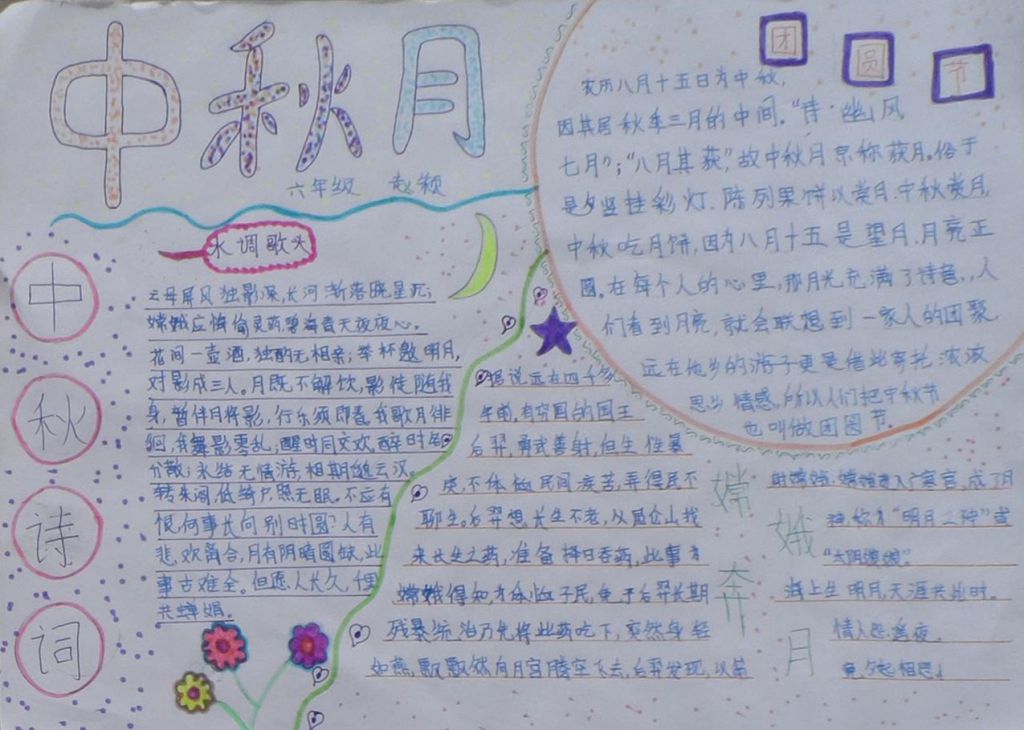 中秋月
六年级 赵颖
团圆节
农历八月十五日为中秋,
因其居秋季三月的中间。“诗·幽风
七月”;“八月其获”故中秋月亦称获月。俗于
是夕竖挂彩灯.陈列果饼以赏月.中秋赏月,
中秋吃月饼,因为八月十五是望月.月亮正
圆.在每个人的心里,那月光充满了诗意,人
们看到月亮,就会联想到一家人的团聚.
远在他乡的游子更是借此寄托浓浓
思乡情感,所以人们把中秋节
也叫做团圆节.
水调歌头
中秋诗词
云母屏风独影深,长河渐落晓星沉;
嫦娥应悔偷灵药,碧海青天夜夜心。
花间一壶酒,独酌无相亲;举杯邀明月,
对影成三人。月既不解饮,影徒随我
身,暂伴月将影,行乐须即春.我歌月徘
徊,我舞影零乱;醒时同交欢,醉时各
分散;永结无情游,相期邈云汉。
转朱阁,低绮户,照无眠。不应有
恨,何事长向别时圆?人有
悲欢离合,月有阴晴圆缺,此
事古难全。但愿人长久,
共蝉娟。
据说远在四千多
年前,有穷国的国王
后羿,勇武善射,但生性暴
戾,不体恤民间疾苦,弄得民不
聊生,后羿想长生不老,从昆仑山找
来长生之药,准备择日吞药,此事为
嫦娥得知,为体恤子民,免于后羿长期
残暴统治乃先将此药吃下,突然身轻
如燕,飘飘然向月宫腾空飞去,后羿发现,以箭
嫦娥奔月
射嫦娥.嫦娥进入广寒宫,成了月
神,称为“明月之神”或
海上生明月,天涯共此时。
情人怨遥夜,
竟夕起相思!